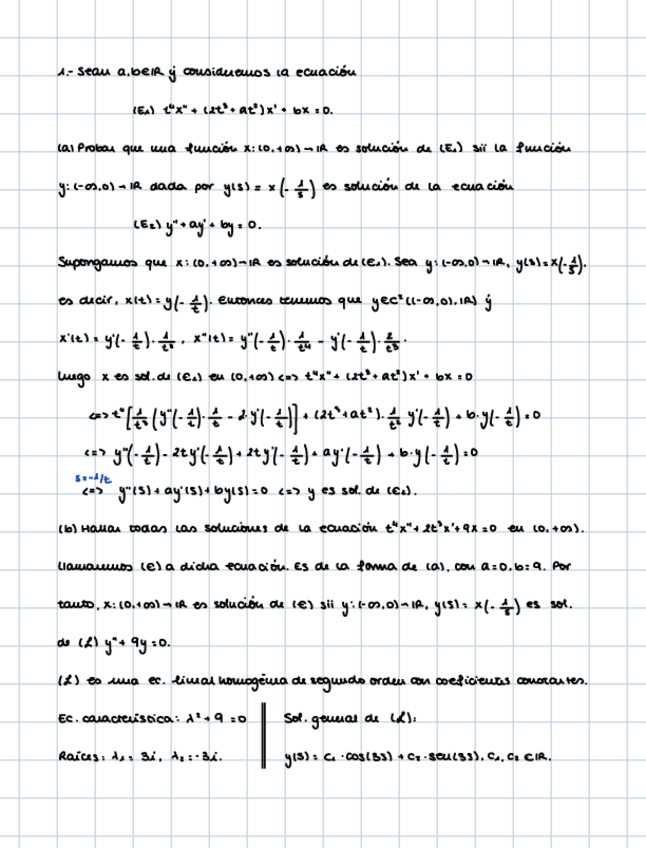 1.- Sean a,b∈ℝ y consideremos la ecuación
(E₁) t⁴x'' + (2t³ + at²)x' + bx = 0.
(a) Probar que una función x: (0,+∞) → ℝ es solución de (E₁) sii la función
y: (-∞,0) → ℝ dada por y(s) = x(-1/s) es solución de la ecuación
(E₂) y'' + ay' + by = 0.
Supongamos que x: (0,+∞) → ℝ es solución de (E₁). Sea y: (-∞,0) → ℝ, y(s) = x(-1/s).
es decir, x(t) = y(-1/t). Entonces tenemos que y∈C²((-∞,0),ℝ) y
x'(t) = y'(-1/t)·1/t², x''(t) = y''(-1/t)·1/t⁴ - y'(-1/t)·2/t³.
Luego x es sol. de (E₁) en (0,+∞) <=> t⁴x'' + (2t³ + at²)x' + bx = 0
<=> t⁴[1/t³(y''(-1/t)·1/t - 2·y'(-1/t))] + (2t³ + at²)·1/t² y'(-1/t) + b·y(-1/t) = 0
<=> y''(-1/t) - 2ty'(-1/t) + 2ty'(-1/t) + ay'(-1/t) + b·y(-1/t) = 0
s=-1/t
<=> y''(s) + ay'(s) + by(s) = 0 <=> y es sol. de (E₂).
(b) Hallar todas las soluciones de la ecuación t⁴x'' + 2t³x' + 9x = 0 en (0,+∞).
Llamaremos (E) a dicha ecuación. Es de la forma de (a), con a=0, b=9. Por
tanto, x: (0,+∞) → ℝ es solución de (E) sii y: (-∞,0) → ℝ, y(s) = x(-1/s) es sol.
de (L) y'' + 9y = 0.
(L) es una ec. lineal homogénea de segundo orden con coeficientes constantes.
Ec. característica: λ² + 9 = 0
Raíces: λ₁ = 3i, λ₂ = -3i.
Sol. general de (L):
y(s) = C₁·cos(3s) + C₂·sen(3s), C₁, C₂ ∈ℝ.